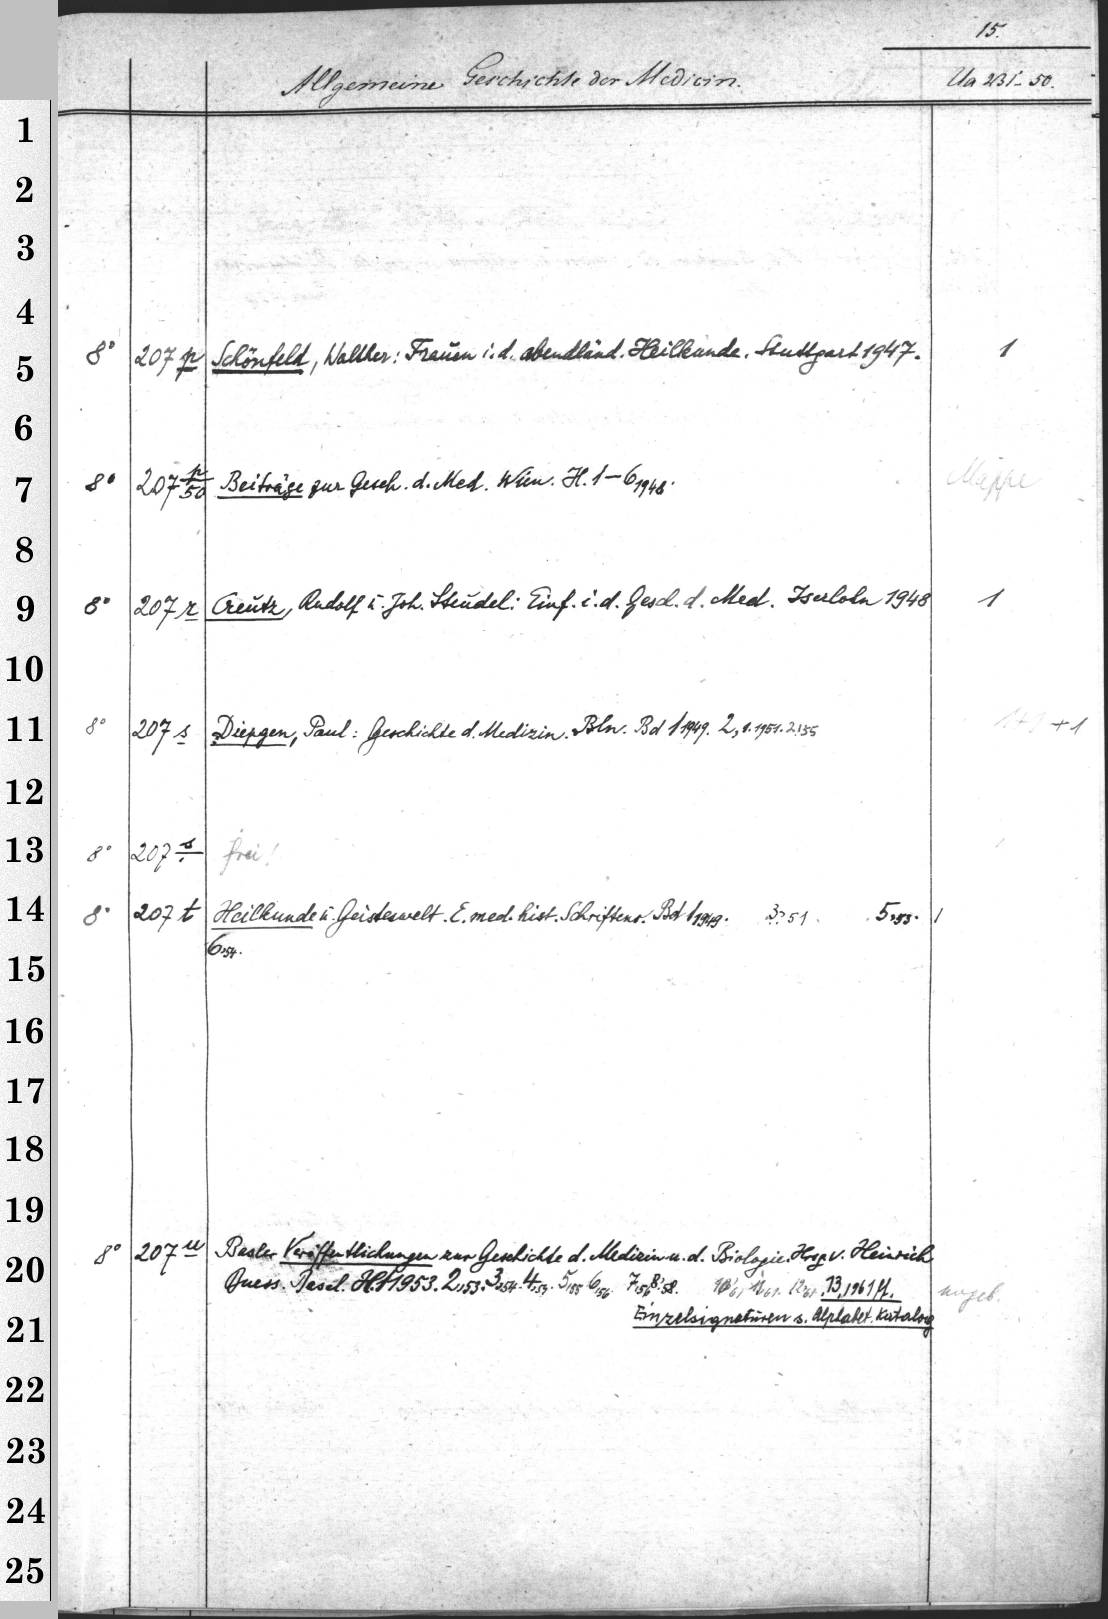 15.
Allgemeine Geschichte der Medicin. Ua 231-50.
1
2
3
4
8° 207 p Schönfeld, Walther: Frauen i. d. abendländ. Heilkunde. Stuttgart 1947. 1
5
6
8° 207 p/50 Beiträge zur Gesch. d. Med. Wien. H. 1–6 1948. Mappe
7
8
8° 207 r Creutz, Rudolf u. Joh. Steudel: Einf. i. d. Gesch. d. Med. Iserlohn 1948 1
9
10
8° 207 s Diepgen, Paul: Geschichte d. Medizin. Bln. Bd 1 1949. 2,1. 1951. 2.'55 +1
11
12
8° 207 s frei!
13
8° 207 t Heilkunde u. Geisteswelt. E. med. hist. Schriftenr. Bd 1 1949. 3.'51. 5.'53. 1
14
6.'54.
15
16
17
18
19
8° 207 u Basler Veröffentlichungen zur Geschichte d. Medizin u. d. Biologie. Hrsg. v. Heinrich
20
Buess. Basel. H. 1 1953. 2,'53. 3,'54. 4,'54. 5,'55 6,'56. 7,'56 8,'58. 13,1961 ff. ungeb.
Einzelsignaturen s. Alphabet. Katalog
21
22
23
24
25